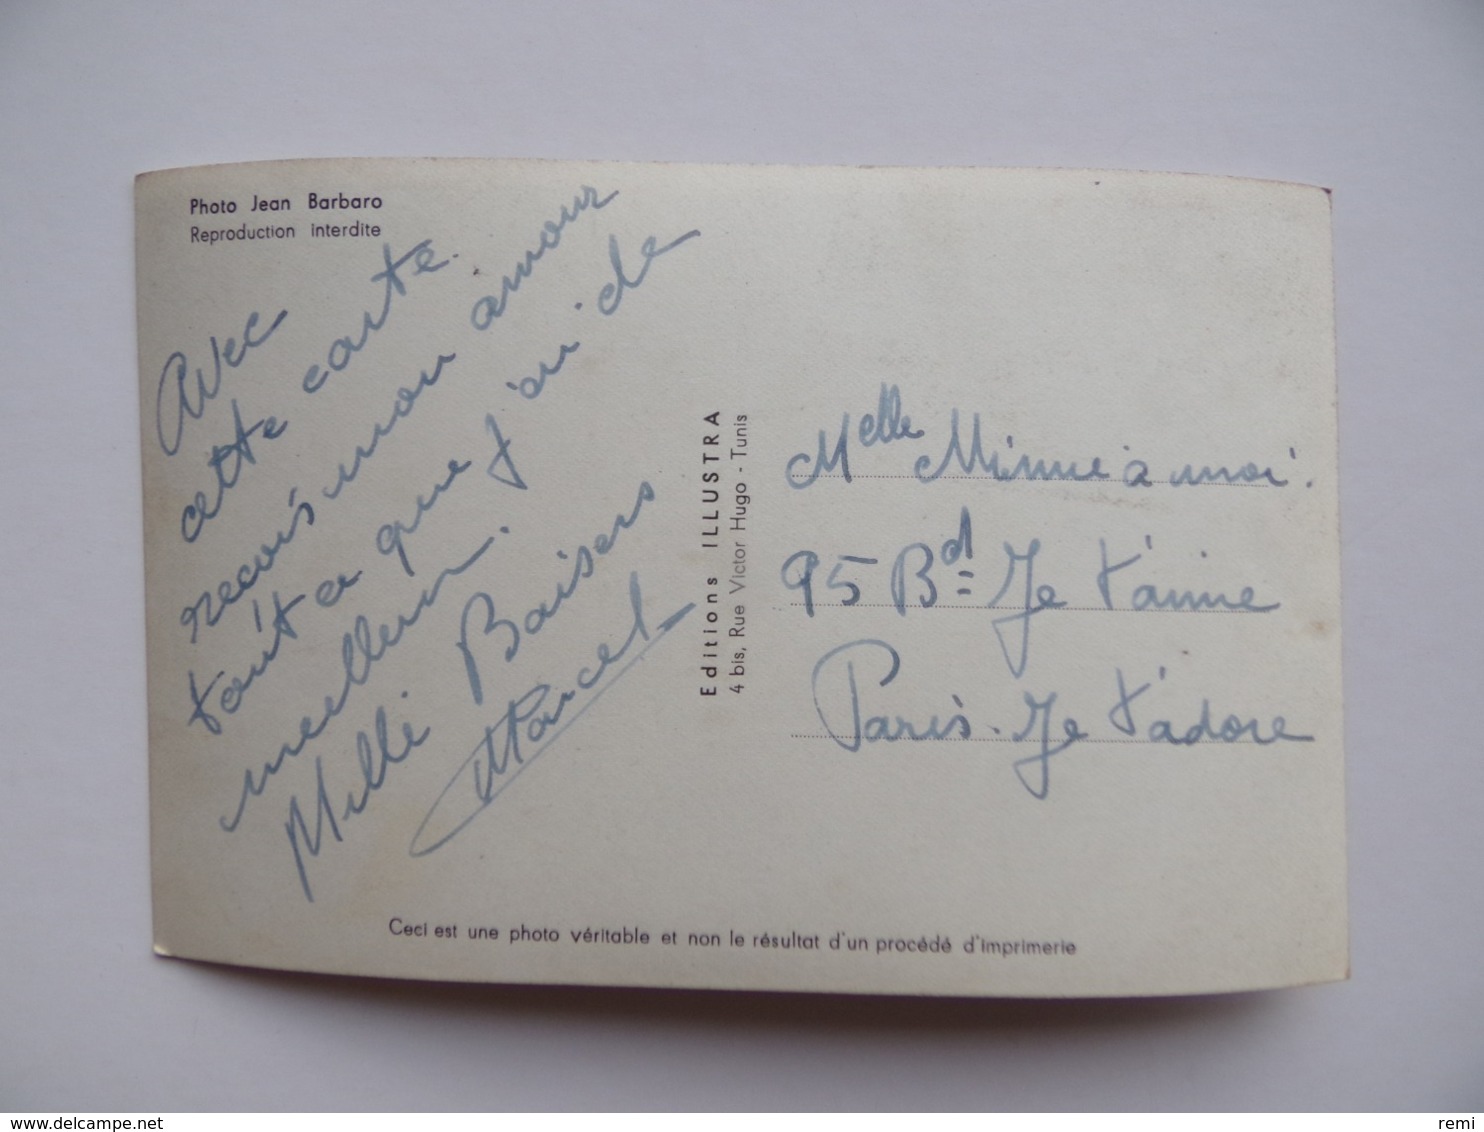 Photo Jean Barbaro
Reproduction interdite
Avec
cette carte.
recois mon amour
tout ce que j'ai de
meilleur.
Mille Baisers
Marcel
Editions ILLUSTRA
4 bis, Rue Victor Hugo - Tunis
Melle Minne à moi.
95 Bd Je t'aime
Paris. Je t'adore
Ceci est une photo véritable et non le résultat d'un procédé d'imprimerie
www.delcampe.net
remi